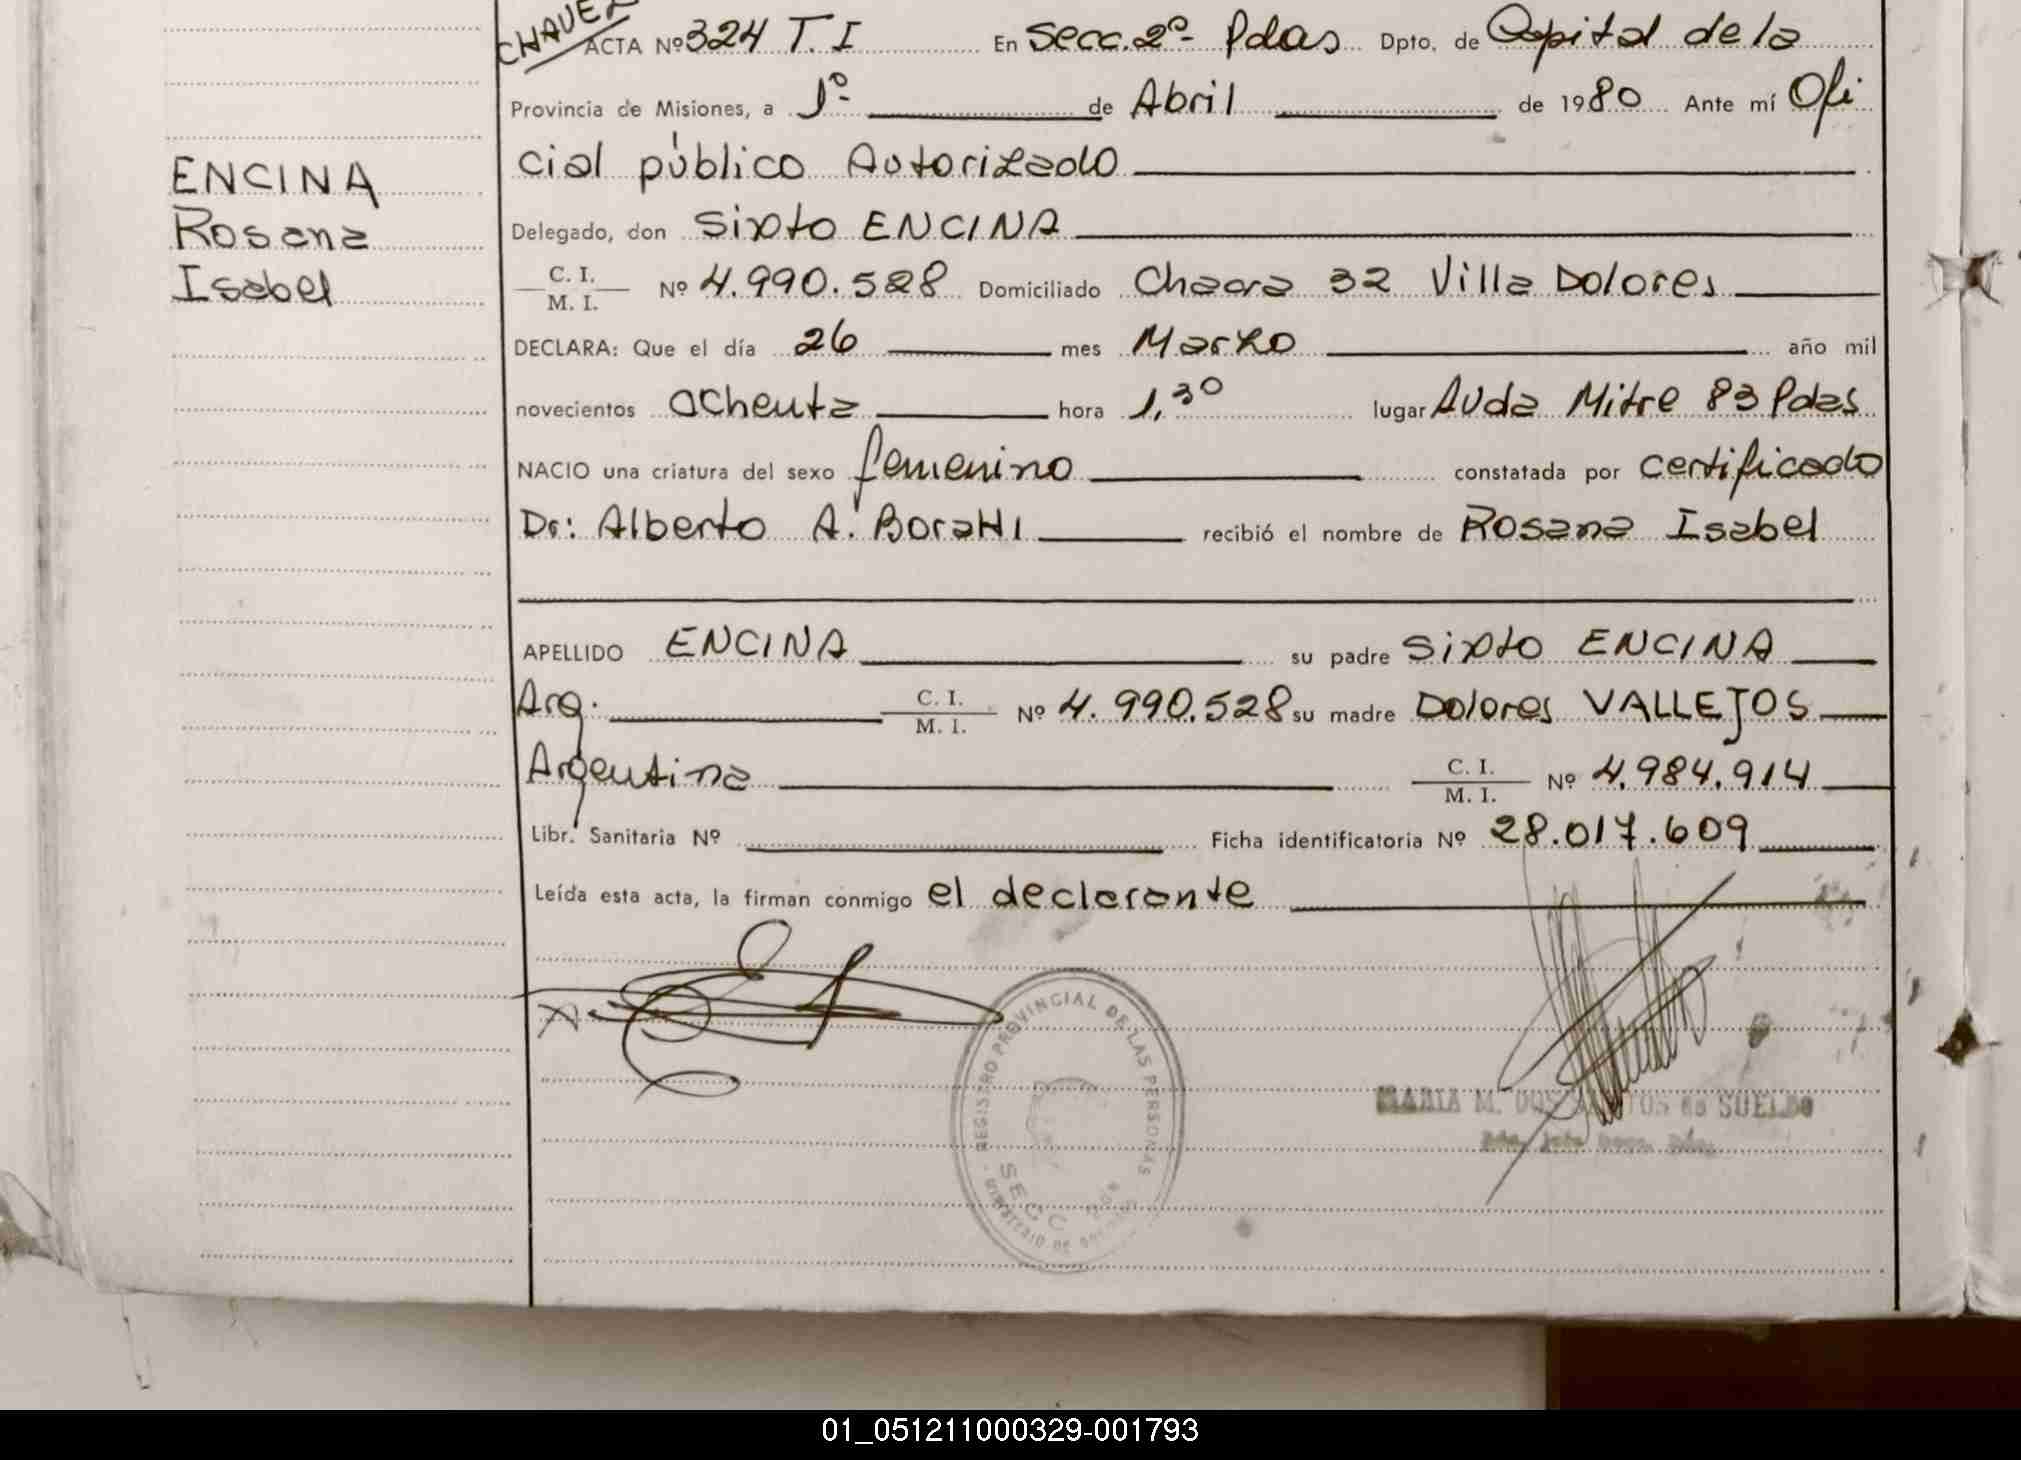 CHAVEZ
ACTA Nº 324 T. I En Secc. 2º- Pdas Dpto. de Capital de la
Provincia de Misiones, a 1º- de Abril de 1980 Ante mí Ofi
cial público Autorizado
Delegado, don Sixto ENCINA
C. I.
M. I. Nº 4.990.528 Domiciliado Chacra 32 Villa Dolores
DECLARA: Que el día 26 mes Marzo año mil
novecientos ochenta hora 1,30 lugar Avda Mitre 83 Pdas
NACIO una criatura del sexo femenino constatada por certificado
Dr: Alberto A. recibió el nombre de Rosana Isabel
APELLIDO ENCINA su padre Sixto ENCINA
Arg. C. I.
M. I. Nº 4.990.528 su madre Dolores VALLEJOS
Argentina C. I.
M. I. Nº 4.984.914
Libr. Sanitaria Nº Ficha identificatoria Nº 28.017.609
Leída esta acta, la firman conmigo el declarante
ENCINA
Rosana
Isabel
REGISTRO PROVINCIAL DE LAS PERSONAS
SECC
MARIA M. DOS SANTOS de SUELDO
01_051211000329-001793